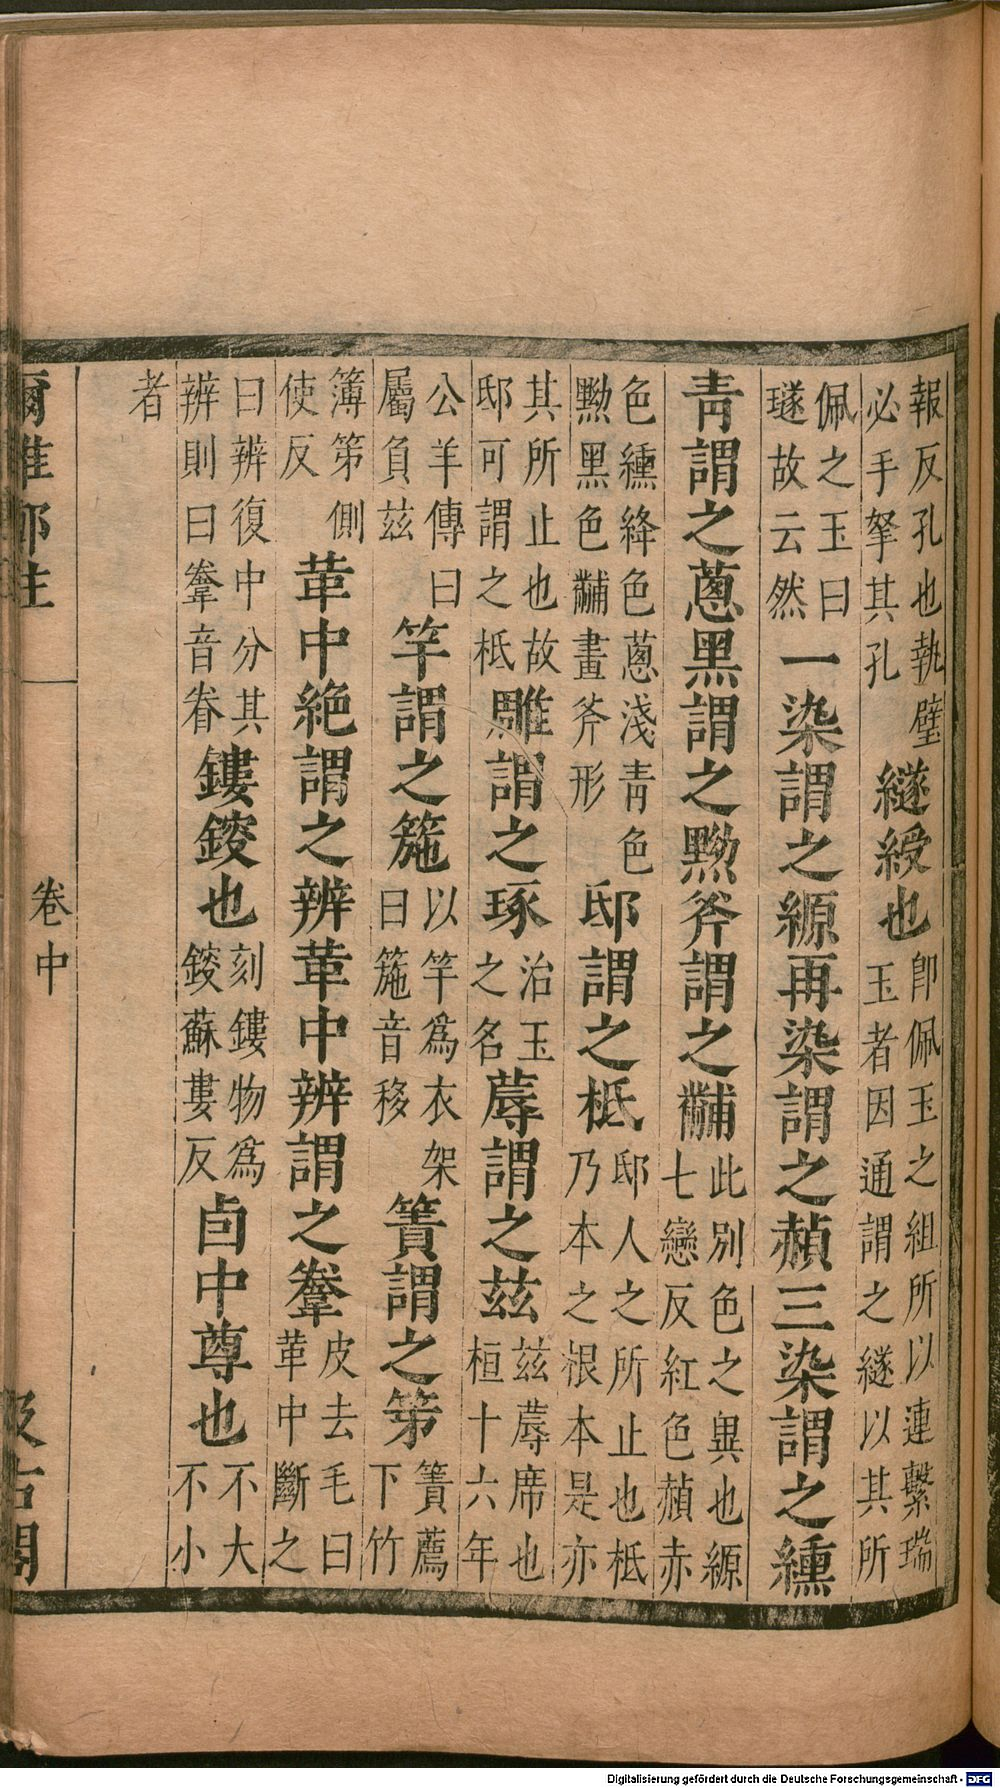 報反孔也執璧
必手拏其孔
繸綬也
卽佩玉之組所以連繫瑞
玉者因通謂之繸以其所
佩之玉曰
璲故云然
一染謂之縓再染謂之赬三染謂之纁
靑謂之蔥黑謂之黝斧謂之黼
此別色之異也縓
七戀反紅色赬赤
色纁絳色蔥淺靑色
黝黑色黼畫斧形
邸謂之柢
邸人之所止也柢
乃本之根本是亦
其所止也故
邸可謂之柢
雕謂之琢
治玉
之名
蓐謂之兹
兹蓐席也
桓十六年
公羊傳曰
屬負兹
竿謂之箷
以竿爲衣架
曰箷音移
簀謂之笫
簀薦
下竹
簿笫側
使反
革中絶謂之辨革中辨謂之韏
皮去毛曰
革中斷之
曰辨復中分其
辨則曰韏音眷
鏤鎪也
刻鏤物爲
鎪蘇婁反
卣中尊也
不大
不小
者
爾雅郭注
卷中
汲古閣
Digitalisierung gefördert durch die Deutsche Forschungsgemeinschaft - DFG